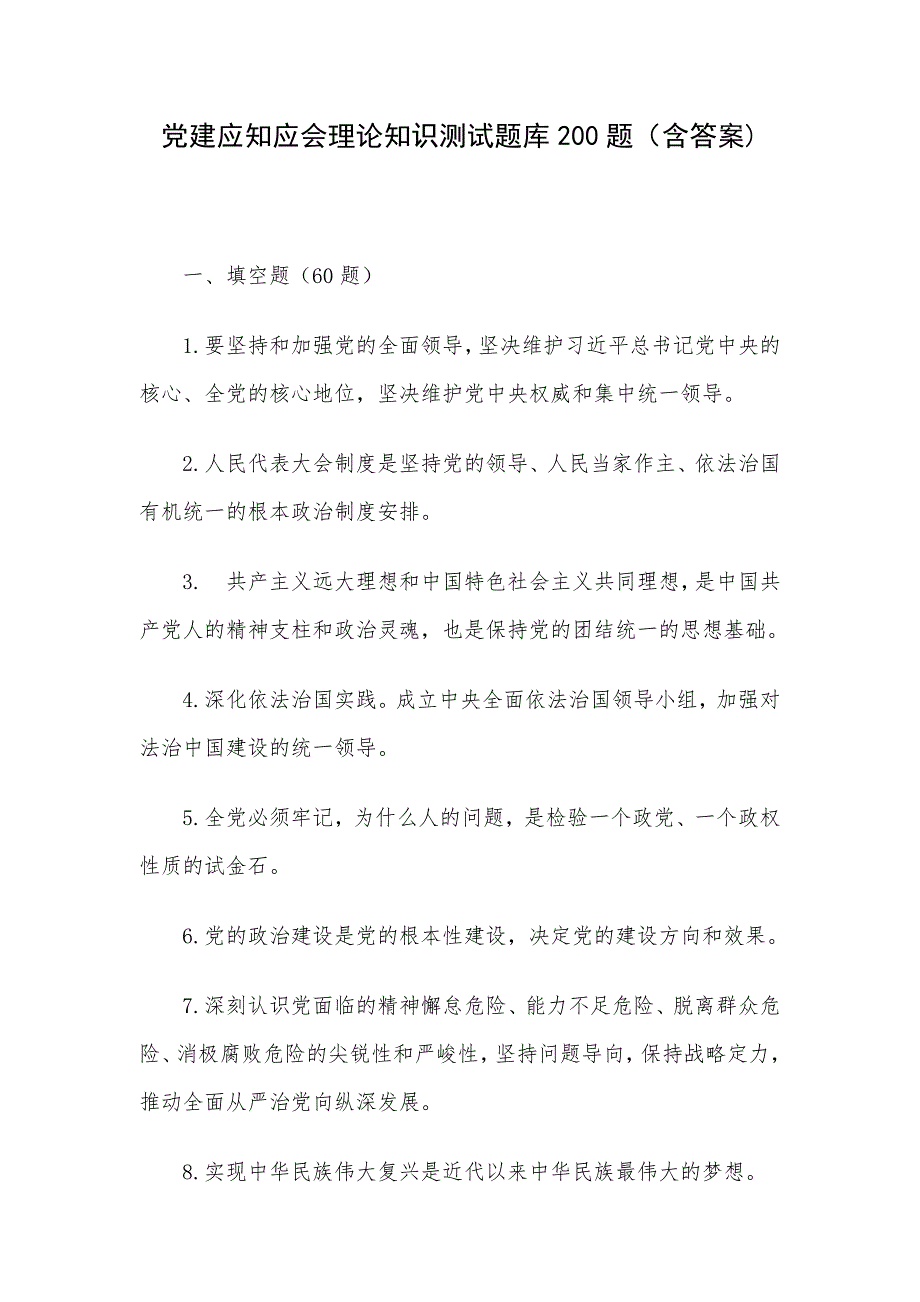 党建应知应会理论知识测试题库 200 题（含答案)
一、填空题（60 题）
1.要坚持和加强党的全面领导，坚决维护习近平总书记党中央的
核心、全党的核心地位，坚决维护党中央权威和集中统一领导。
2.人民代表大会制度是坚持党的领导、人民当家作主、依法治国
有机统一的根本政治制度安排。
3. 共产主义远大理想和中国特色社会主义共同理想，是中国共
产党人的精神支柱和政治灵魂，也是保持党的团结统一的思想基础。
4.深化依法治国实践。成立中央全面依法治国领导小组，加强对
法治中国建设的统一领导。
5.全党必须牢记，为什么人的问题，是检验一个政党、一个政权
性质的试金石。
6.党的政治建设是党的根本性建设，决定党的建设方向和效果。
7.深刻认识党面临的精神懈怠危险、能力不足危险、脱离群众危
险、消极腐败危险的尖锐性和严峻性，坚持问题导向，保持战略定力，
推动全面从严治党向纵深发展。
8.实现中华民族伟大复兴是近代以来中华民族最伟大的梦想。